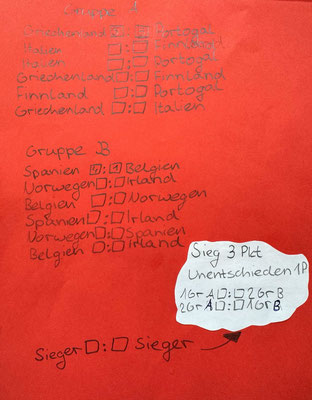 Gruppe A
Griechenland □:□ Portogal
Italien □:□ Finnland
Italien □:□ Portogal
Griechenland □:□ Finnland
Finnland □:□ Portogal
Griechenland □:□ Italien
Gruppe B
Spanien □:□ Belgien
Norwegen □:□ Irland
Belgien □:□ Norwegen
Spanien □:□ Irland
Norwegen □:□ Spanien
Belgien □:□ Irland
Sieg 3 Pkt
Unentschieden 1P
1Gr A □:□ 2Gr B
2Gr A □:□ 1Gr B
Sieger □:□ Sieger